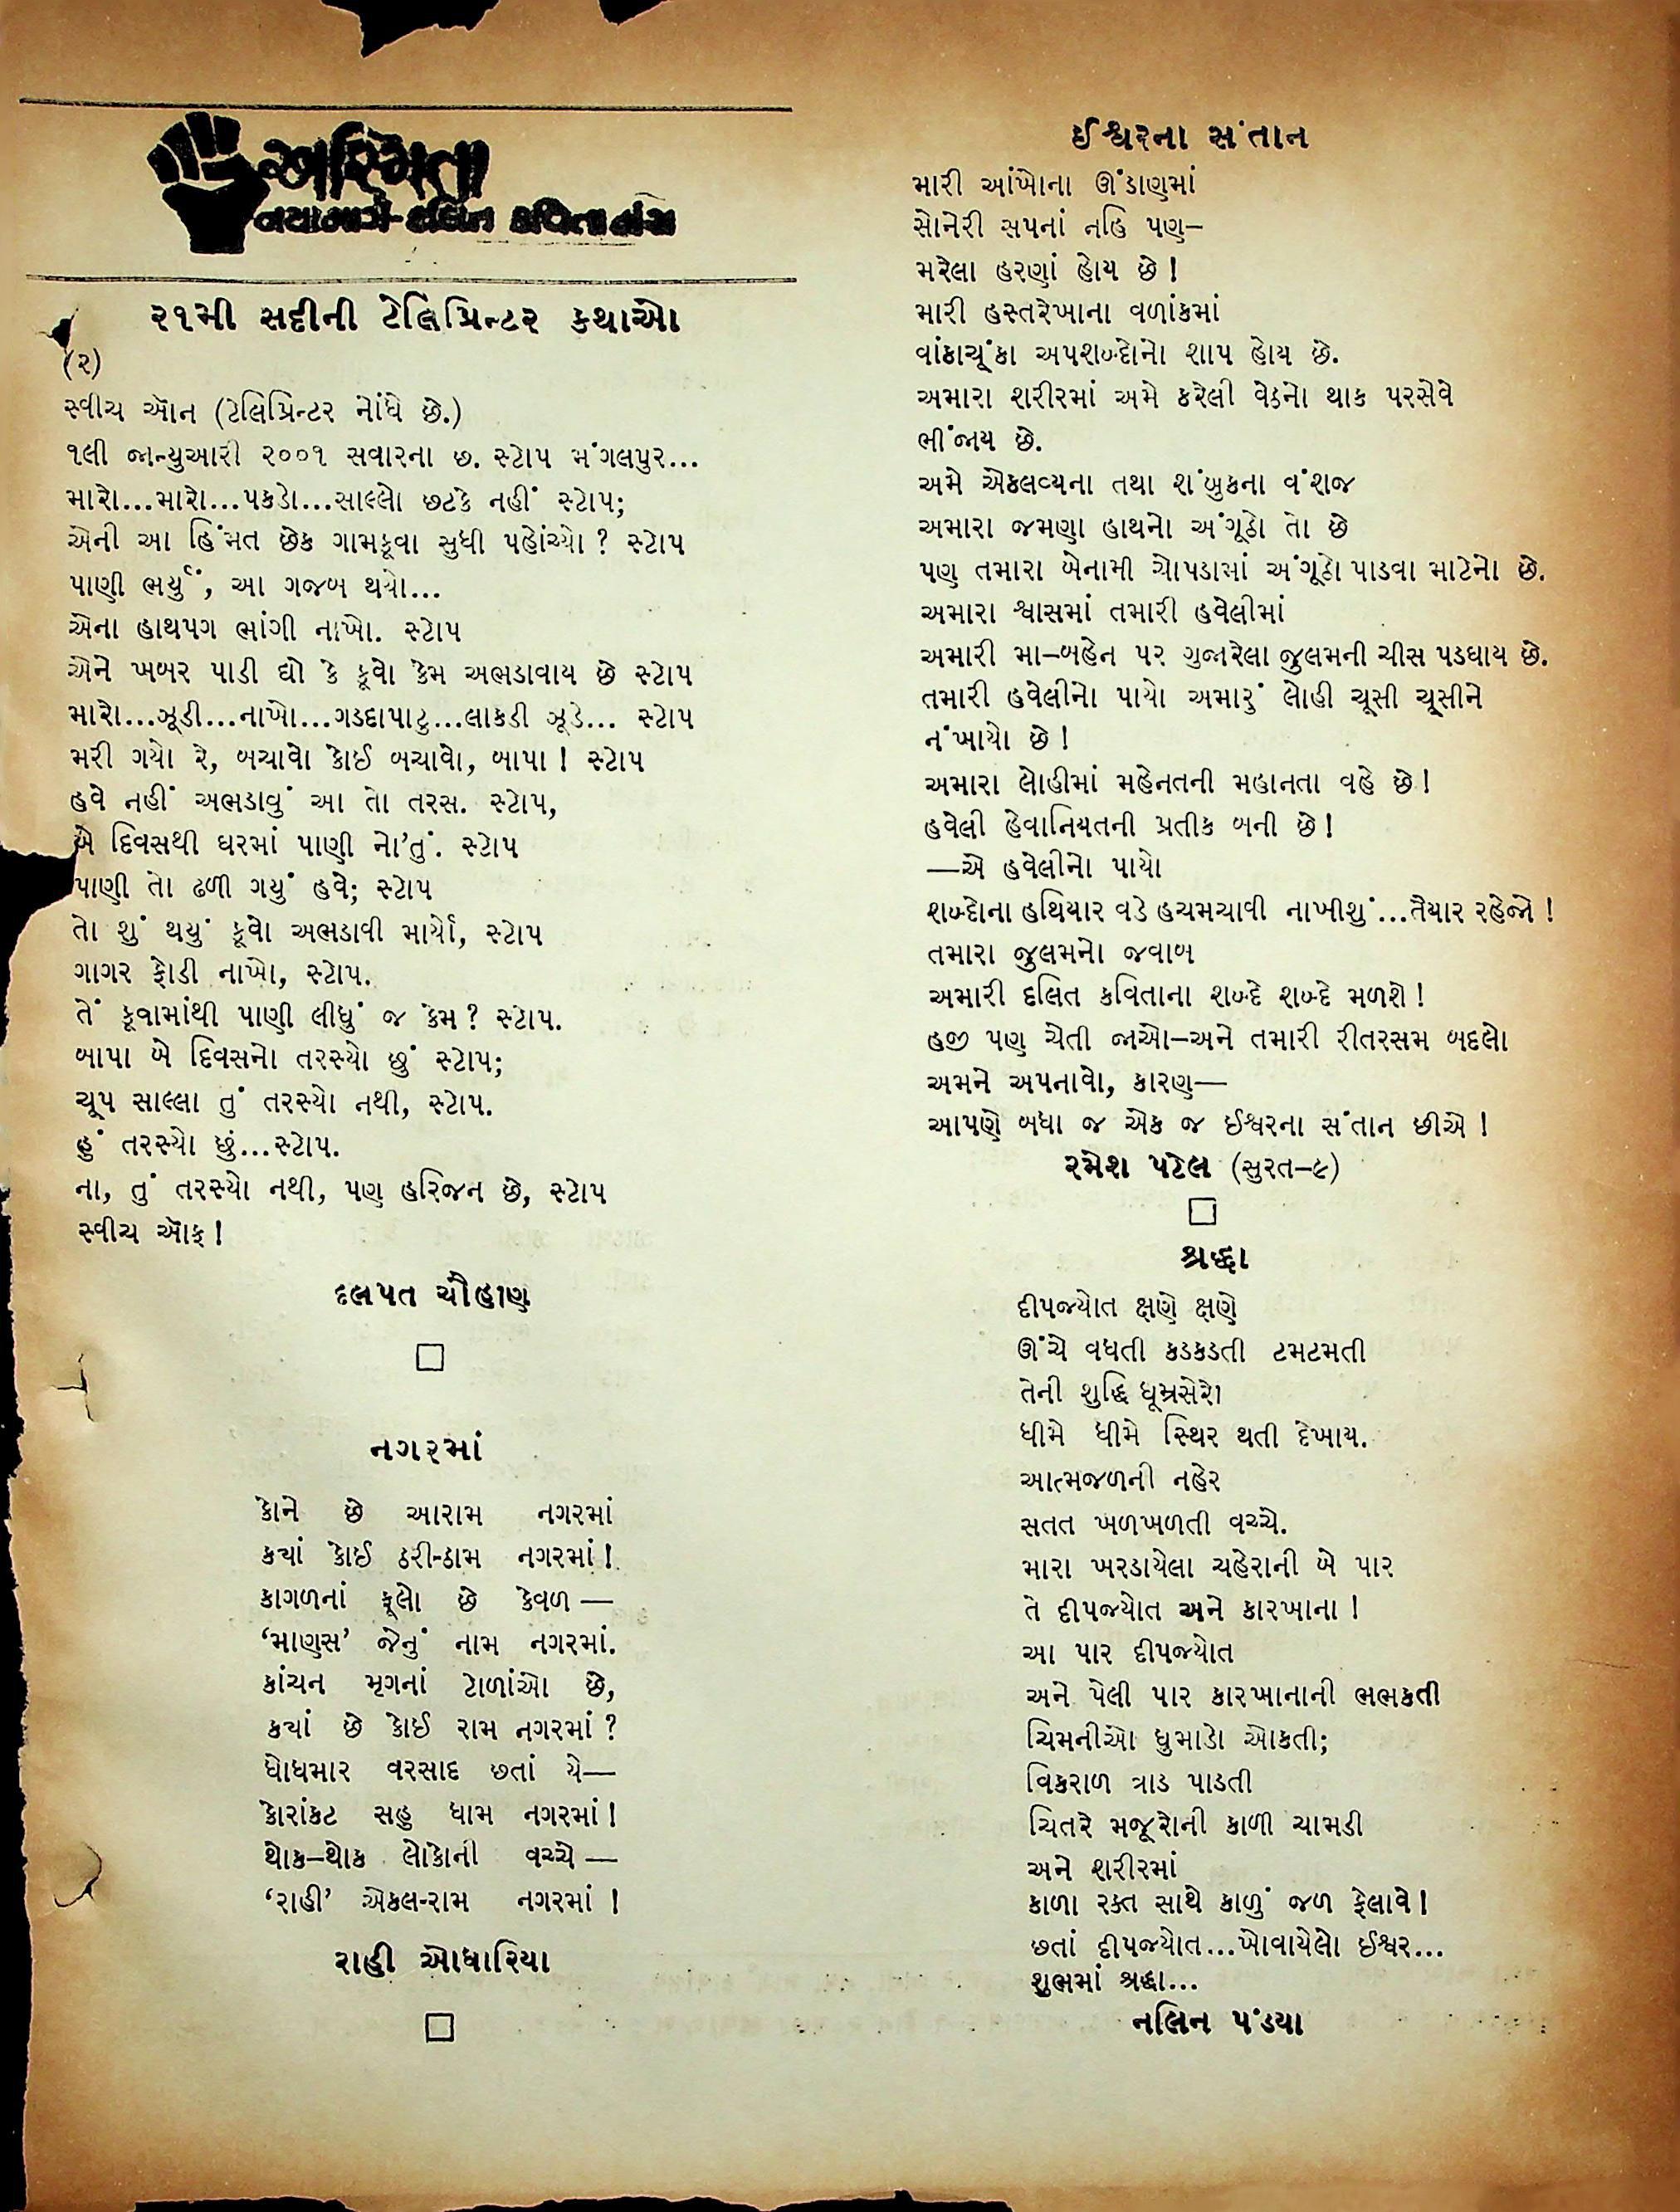 અસ્મિતા
નયામાર્ગ-દલિત કવિતા મંચ
૨૧મી સદીની ટેલિપ્રિન્ટર કથાઓ
(૨)
સ્વીચ ઑન (ટેલિપ્રિન્ટર નોંધે છે.)
૧લી જાન્યુઆરી ૨૦૦૧ સવારના છ. સ્ટોપ મંગલપુર...
મારો...મારો...પકડો...સાલ્લો છટકે નહીં સ્ટોપ;
એની આ હિંમત છેક ગામકૂવા સુધી પહોંચ્યો ? સ્ટોપ
પાણી ભર્યું, આ ગજબ થયો...
એના હાથપગ ભાંગી નાખો. સ્ટોપ
એને ખબર પાડી દ્યો કે કૂવો કેમ અભડાવાય છે સ્ટોપ
મારો...ઝૂડી...નાખો...ગડદાપાટુ...લાકડી ઝૂડે... સ્ટોપ
મરી ગયો રે, બચાવો કોઈ બચાવો, બાપા ! સ્ટોપ
હવે નહીં અભડાવું આ તો તરસ. સ્ટોપ,
બે દિવસથી ઘરમાં પાણી નો'તું. સ્ટોપ
પાણી તો ઢળી ગયું હવે; સ્ટોપ
તો શું થયું કૂવો અભડાવી માર્યો, સ્ટોપ
ગાગર ફોડી નાખો, સ્ટોપ.
તેં કૂવામાંથી પાણી લીધું જ કેમ ? સ્ટોપ.
બાપા બે દિવસનો તરસ્યો છું સ્ટોપ;
ચૂપ સાલ્લા તું તરસ્યો નથી, સ્ટોપ.
હું તરસ્યો છું...સ્ટોપ.
ના, તું તરસ્યો નથી, પણ હરિજન છે, સ્ટોપ
સ્વીચ ઑફ !
દલપત ચૌહાણ
નગરમાં
કોને છે આરામ નગરમાં
ક્યાં કોઈ ઠરી-ઠામ નગરમાં !
કાગળનાં ફૂલો છે કેવળ —
‘માણસ’ જેનું નામ નગરમાં.
કાંચન મૃગનાં ટોળાંઓ છે,
ક્યાં છે કોઈ રામ નગરમાં ?
ધોધમાર વરસાદ છતાં યે—
કોરાંકટ સહુ ધામ નગરમાં !
થોક–થોક લોકોની વચ્ચે —
‘રાહી’ એકલ-રામ નગરમાં !
રાહી ઓધારિયા
ઈશ્વરના સંતાન
મારી આંખોના ઊંડાણમાં
સોનેરી સપનાં નહિ પણ–
મરેલા હરણાં હોય છે !
મારી હસ્તરેખાના વળાંકમાં
વાંકાચૂંકા અપશબ્દોનો શાપ હોય છે.
અમારા શરીરમાં અમે કરેલી વેઠનો થાક પરસેવે
ભીંજાય છે.
અમે એકલવ્યના તથા શંબુકના વંશજ
અમારા જમણા હાથનો અંગૂઠો તો છે
પણ તમારા બેનામી ચોપડામાં અંગૂઠો પાડવા માટેનો છે.
અમારા શ્વાસમાં તમારી હવેલીમાં
અમારી મા–બહેન પર ગુજારેલા જુલમની ચીસ પડઘાય છે.
તમારી હવેલીનો પાયો અમારું લોહી ચૂસી ચૂસીને
નંખાયો છે !
અમારા લોહીમાં મહેનતની મહાનતા વહે છે !
હવેલી હેવાનિયતની પ્રતીક બની છે !
—એ હવેલીનો પાયો
શબ્દોના હથિયાર વડે હચમચાવી નાખીશું...તૈયાર રહેજો !
તમારા જુલમનો જવાબ
અમારી દલિત કવિતાના શબ્દે શબ્દે મળશે !
હજી પણ ચેતી જાઓ–અને તમારી રીતરસમ બદલો
અમને અપનાવો, કારણ—
આપણે બધા જ એક જ ઈશ્વરના સંતાન છીએ !
રમેશ પટેલ (સુરત–૯)
શ્રદ્ધા
દીપજ્યોત ક્ષણે ક્ષણે
ઊંચે વધતી કડકડતી ટમટમતી
તેની શુદ્ધિ ધૂમ્રસેરો
ધીમે ધીમે સ્થિર થતી દેખાય.
આત્મજળની નહેર
સતત ખળખળતી વચ્ચે.
મારા ખરડાયેલા ચહેરાની બે પાર
તે દીપજ્યોત અને કારખાના !
આ પાર દીપજ્યોત
અને પેલી પાર કારખાનાની ભભકતી
ચિમનીઓ ધુમાડો ઓકતી;
વિકરાળ ત્રાડ પાડતી
ચિતરે મજૂરોની કાળી ચામડી
અને શરીરમાં
કાળા રક્ત સાથે કાળું જળ ફેલાવે !
છતાં દીપજ્યોત...ખોવાયેલો ઈશ્વર...
શુભમાં શ્રદ્ધા...
નલિન પંડ્યા